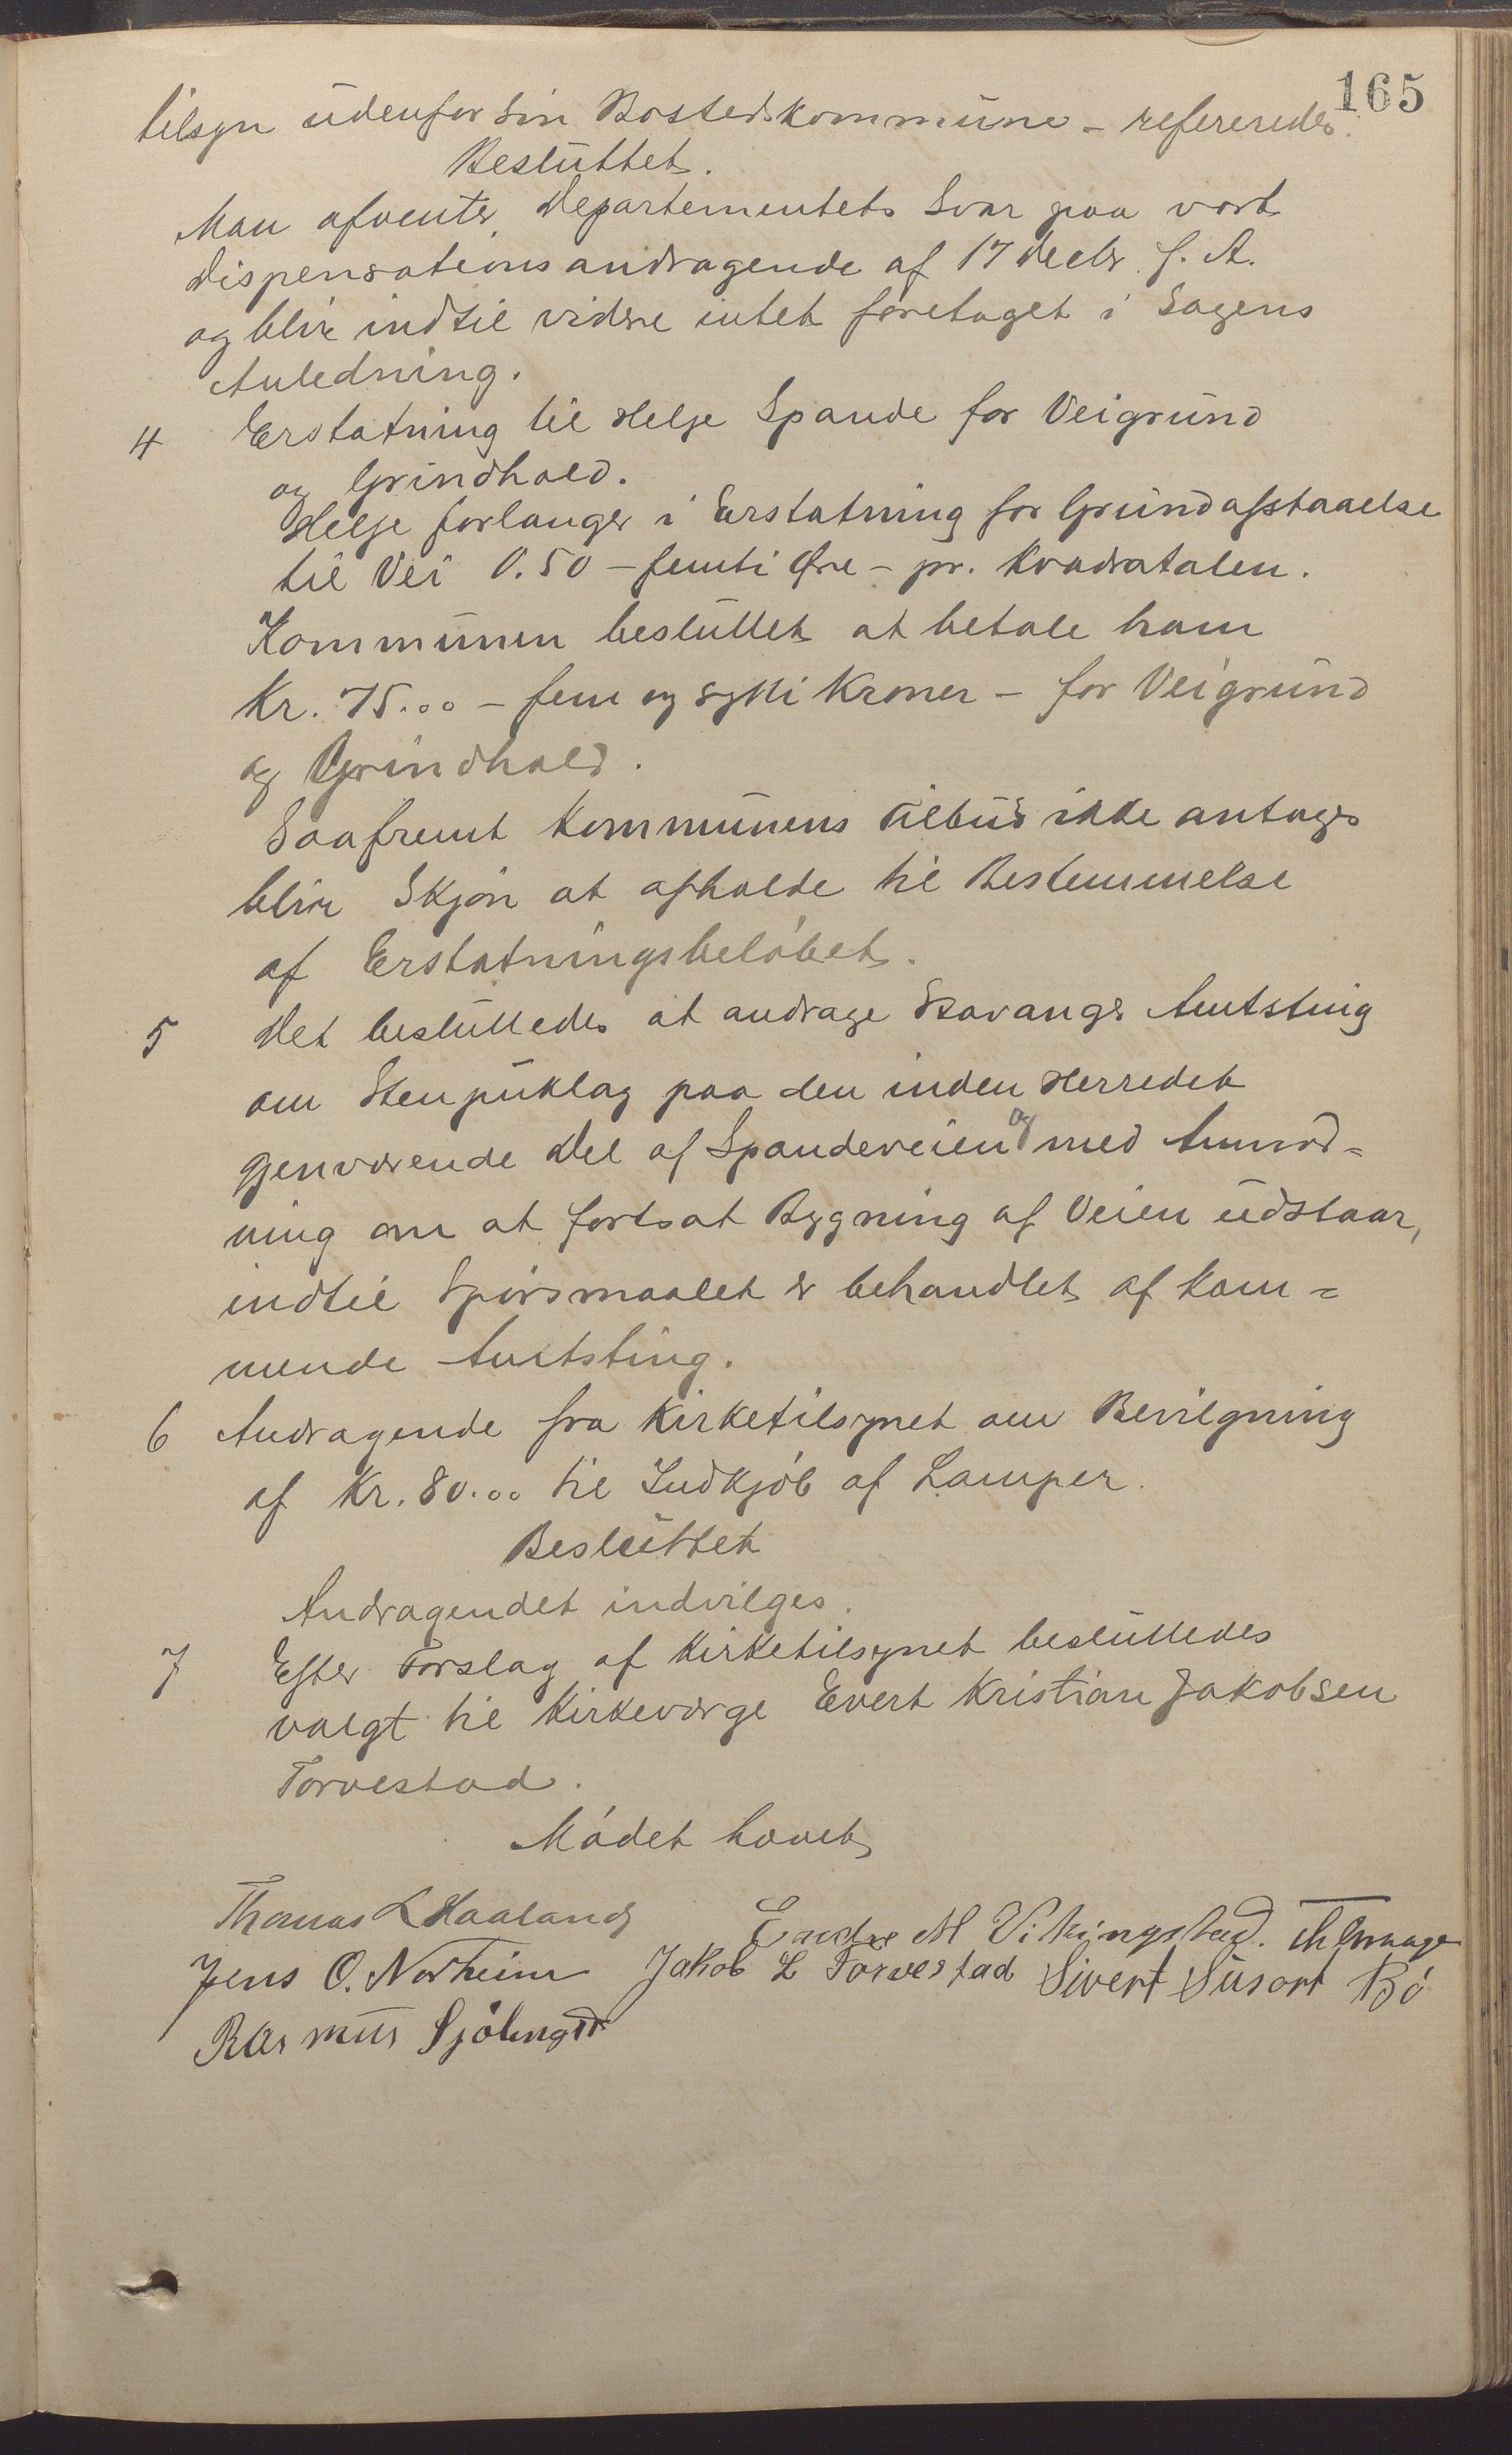 165
tilsyn udenfor sin Bostedskommune - refereredes.
Besluttet.
Man afventer Departementets Svar paa vort
Dispensationsandragende af 17 Decbr. f. A.
og blir indtil videre intet foretaget i Sagens
Anledning.
4 Erstatning til Helje Spande for Veigrund
og Grindhold.
Helje forlanger i Erstatning for Grundafstaaelse
til Vei 0.50 - femti Øre - pr. Kvadratalen.
Kommunen besluttet at betale ham
Kr. 75.00 - fem og sytti Kroner - for Veigrund
og Grindhold.
Saafremt Kommunens Tilbud ikke antages
blir Skjøn at afholde til Bestemmelse
af Erstatningsbeløbet.
5 Det besluttedes at andrage Stavanger Amtsting
om Stenpuklag paa den inden Herredet
gjenværende Del af Spandeveien og med Anmod=
ning om at fortsat Bygning af Veien udstaar,
indtil Spørsmaalet er behandlet af kom=
mende Amtsting.
6 Andragende fra Kirketilsynet om Bevilgning
af Kr. 80.00 til Indkjøb af Lamper.
Besluttet
Andragendet indvilges.
7 Efter Forslag af Kirketilsynet besluttedes
valgt til Kirkeværge Evert Kristian Jakobsen
Torvestad.
Mødet hævet
Thomas L Haaland Endre M Vikingstad.
Jens O. Norheim Jakob L Torvestad Sivert Susort Bø
Rasmus